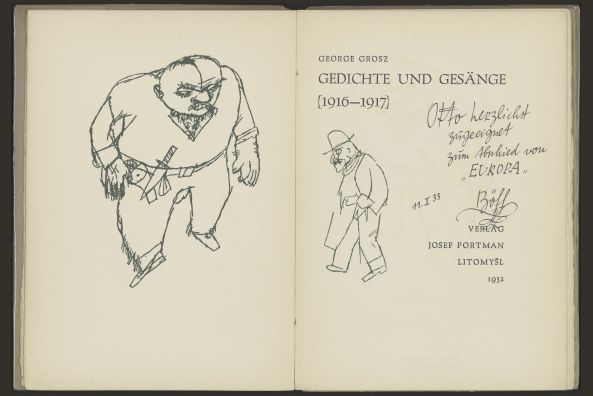 GEORGE GROSZ
GEDICHTE UND GESÄNGE
[1916—1917]
Otto herzlichst
zugeeignet
zum Abschied von
„EUROPA„
11. I 33
Böff
VERLAG
JOSEF PORTMAN
LITOMYŠL
1932